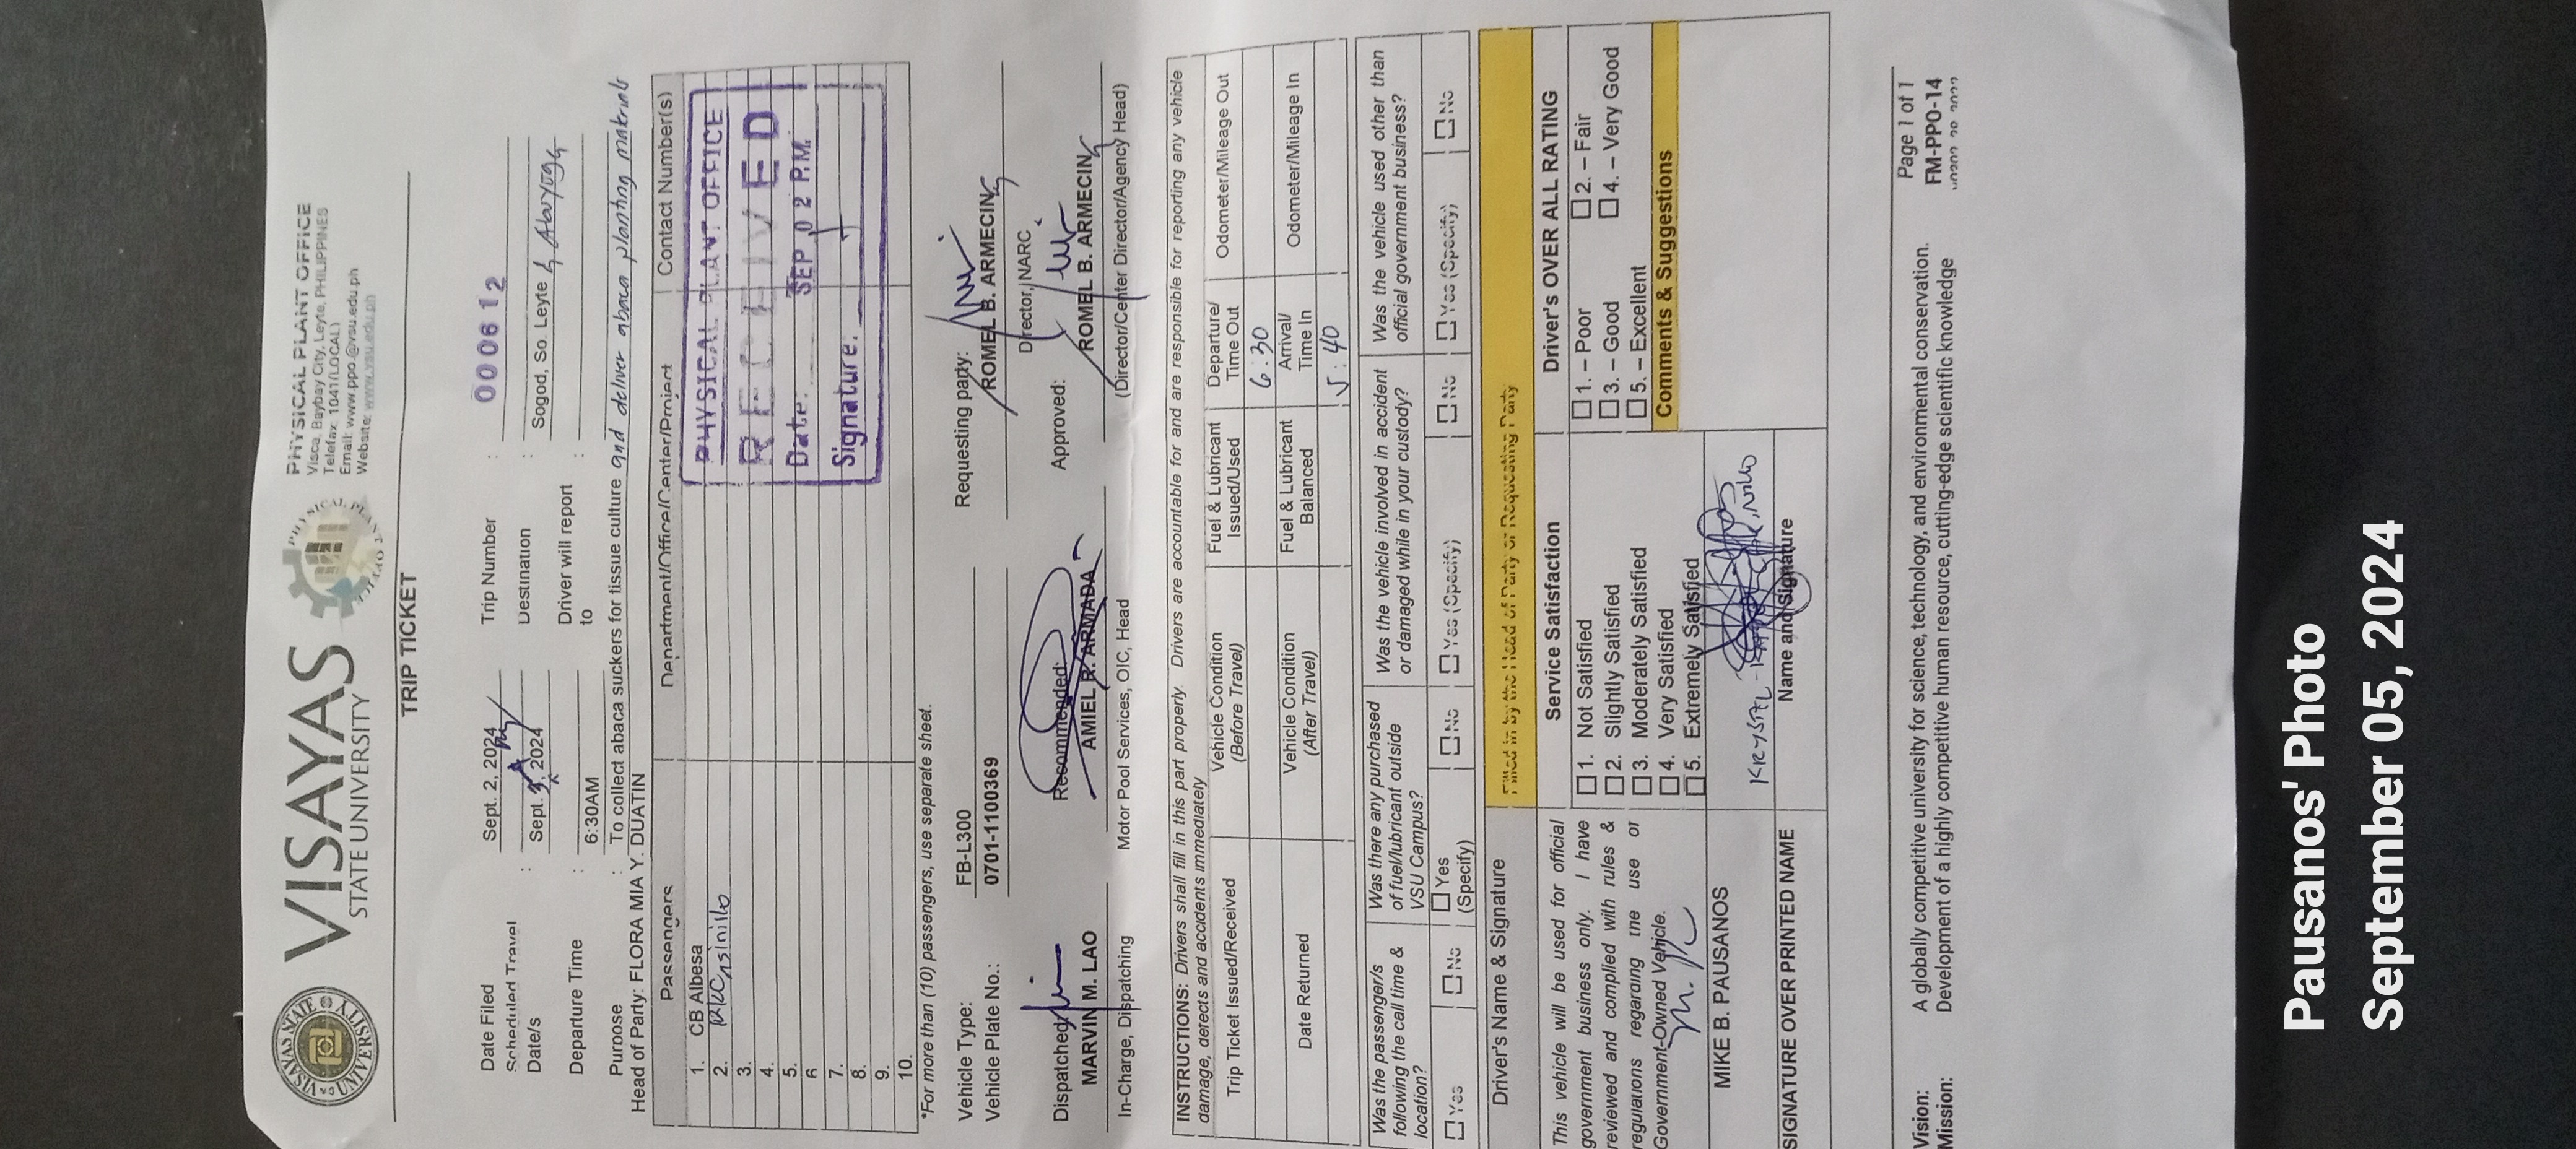 VISAYAS
STATE UNIVERSITY
PHYSICAL PLANT OFFICE
Visca, Baybay City, Leyte, PHILIPPINES
Telefax: 1041(LOCAL)
Email: www.ppo.@vsu.edu.ph
Website: www.vsu.edu.ph
TRIP TICKET
Date Filed Sept. 2, 2024 Trip Number : 000612
Scheduled Travel Date/s : Sept. , 2024 Destination : Sogod, So. Leyte
Departure Time : 6:30AM Driver will report to :
Purpose : To collect abaca suckers for tissue culture and deliver abaca planting materials
Head of Party: FLORA MIA Y. DUATIN
Passengers Department/Office/Center/Project Contact Number(s)
1. CB Albesa
2. Casinillo
3.
4.
5.
6
7.
8.
9.
10.
PHYSICAL PLANT OFFICE
RECEIVED
Date: SEP 02 P.M.
Signature:
*For more than (10) passengers, use separate sheet.
Vehicle Type: FB-L300 Requesting party:
Vehicle Plate No.: 0701-1100369 ROMEL B. ARMECIN
Director, NARC
Dispatched: Recommended: Approved:
MARVIN M. LAO AMIEL R. ARMADA ROMEL B. ARMECIN
In-Charge, Dispatching Motor Pool Services, OIC, Head (Director/Center Director/Agency Head)
INSTRUCTIONS: Drivers shall fill in this part properly. Drivers are accountable for and are responsible for reporting any vehicle
damage, defects and accidents immediately
Trip Ticket Issued/Received Vehicle Condition (Before Travel) Fuel & Lubricant Issued/Used Departure/ Time Out Odometer/Mileage Out
6:30
Date Returned Vehicle Condition (After Travel) Fuel & Lubricant Balanced Arrival/ Time In Odometer/Mileage In
5:40
Was the passenger/s following the call time & location? Was there any purchased of fuel/lubricant outside VSU Campus? Was the vehicle involved in accident or damaged while in your custody? Was the vehicle used other than official government business?
☐ Yes ☐ No ☐ Yes (Specify) ☐ No ☐ Yes (Specify) ☐ No ☐ Yes (Specify) ☐ No
Driver's Name & Signature Filled in by the Head of Party or Requesting Party
This vehicle will be used for official
government business only. I have
reviewed and complied with rules &
regulations regarding the use of
Government-Owned Vehicle.
MIKE B. PAUSANOS
SIGNATURE OVER PRINTED NAME
Service Satisfaction
☐ 1. Not Satisfied
☐ 2. Slightly Satisfied
☐ 3. Moderately Satisfied
☐ 4. Very Satisfied
☐ 5. Extremely Satisfied
Name and Signature
Driver's OVER ALL RATING
☐ 1. – Poor ☐ 2. – Fair
☐ 3. – Good ☐ 4. – Very Good
☐ 5. – Excellent
Comments & Suggestions
Vision: A globally competitive university for science, technology, and environmental conservation.
Mission: Development of a highly competitive human resource, cutting-edge scientific knowledge
Page 1 of 1
FM-PPO-14
Pausanos' Photo
September 05, 2024